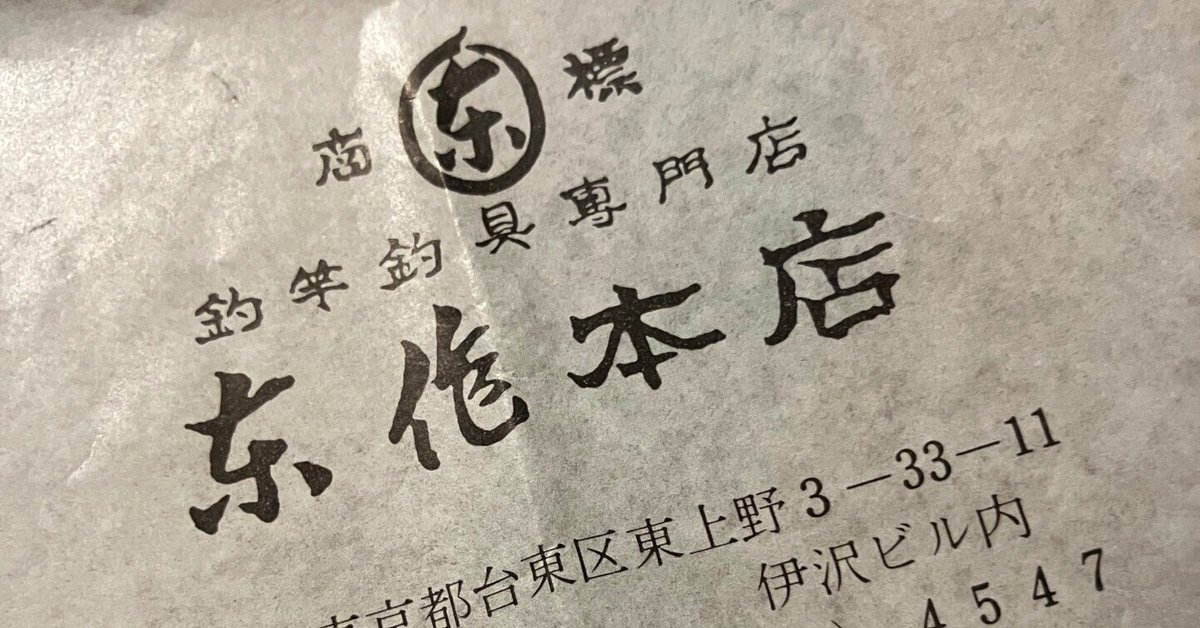 商 东 標
釣竿釣具専門店
东作本店
東京都台東区東上野3-33-11
伊沢ビル内
4547